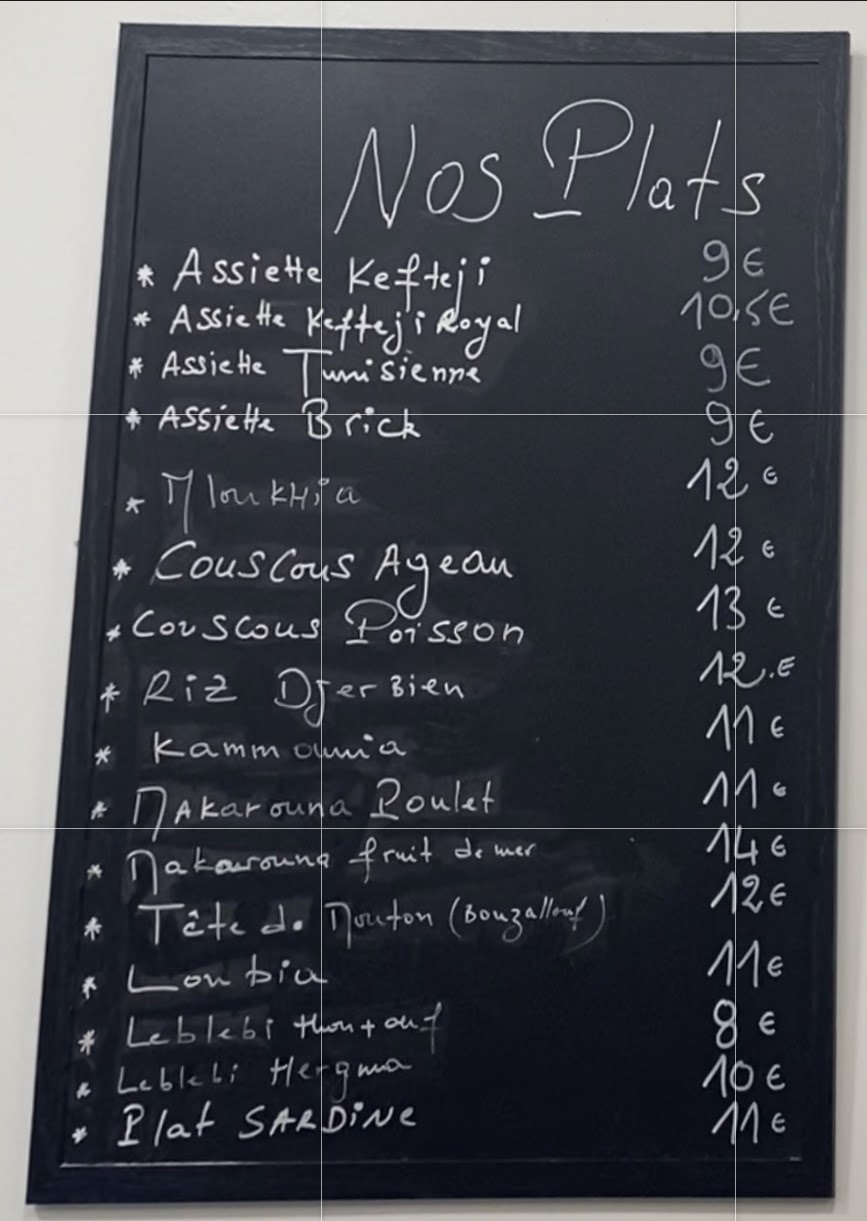 Nos Plats
* Assiette Kefteji 9€
* Assiette Kefteji Royal 10,5€
* Assiette Tunisienne 9€
* Assiette Brick 9€
* Mloukhia 12€
* Couscous Ageau 12€
* Couscous Poisson 13€
* Riz Djerbien 12.€
* Kammounia 11€
* Makarouna Poulet 11€
* Makarouna fruit de mer 14€
* Tête de Mouton (Bouzallouf) 12€
* Loubia 11€
* Leblebi thon + ouf 8€
* Leblebi Hergma 10€
* Plat SARDiNe 11€